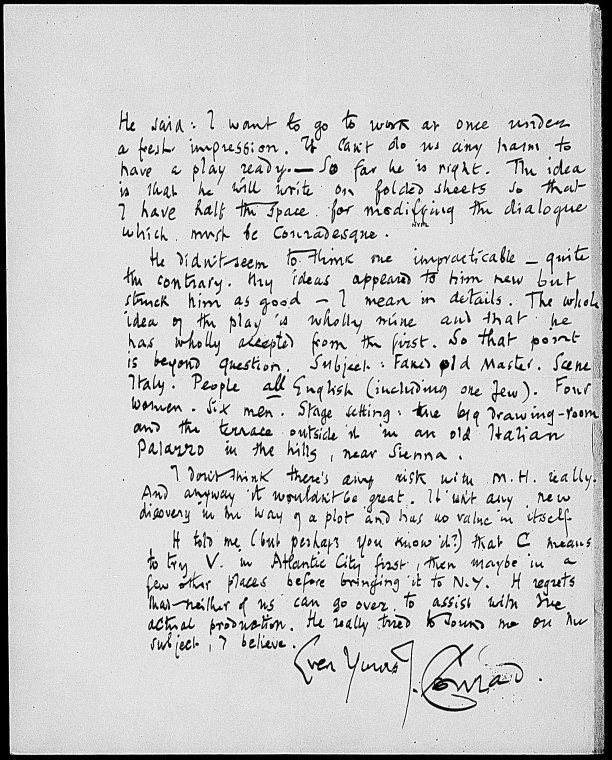 He said: I want to go to work at once under
a fresh impression. It can't do us any harm to
have a play ready. — So far he is right. The idea
is that he will write on folded sheets so that
I have half the space for modifying the dialogue
NYPL
which must be Conradesque.
He didn't seem to think me impracticable — quite
the contrary. My ideas appeared to him new but
struck him as good — I mean in details. The whole
idea of the play is wholly mine and that he
has wholly accepted from the first. So that point
is beyond question. Subject: Faked old Master. Scene
Italy. People all English (including one Jew). Four
women. Six men. Stage setting: the big drawing-room
and the terrace outside it in an old Italian
Palazzo in the hills, near Sienna.
I don't think there's any risk with M.H. really.
And anyway it wouldn't be great. It isn't any new
discovery in the way of a plot and has no value in itself.
H told me (but perhaps you know it?) that C means
to try V. in Atlantic City first, then maybe in a
few other places before bringing it to N.Y. H regrets
that neither of us can go over to assist with the
actual production. He really tried to sound me on the
subject, I believe.
Ever Yours J. Conrad.